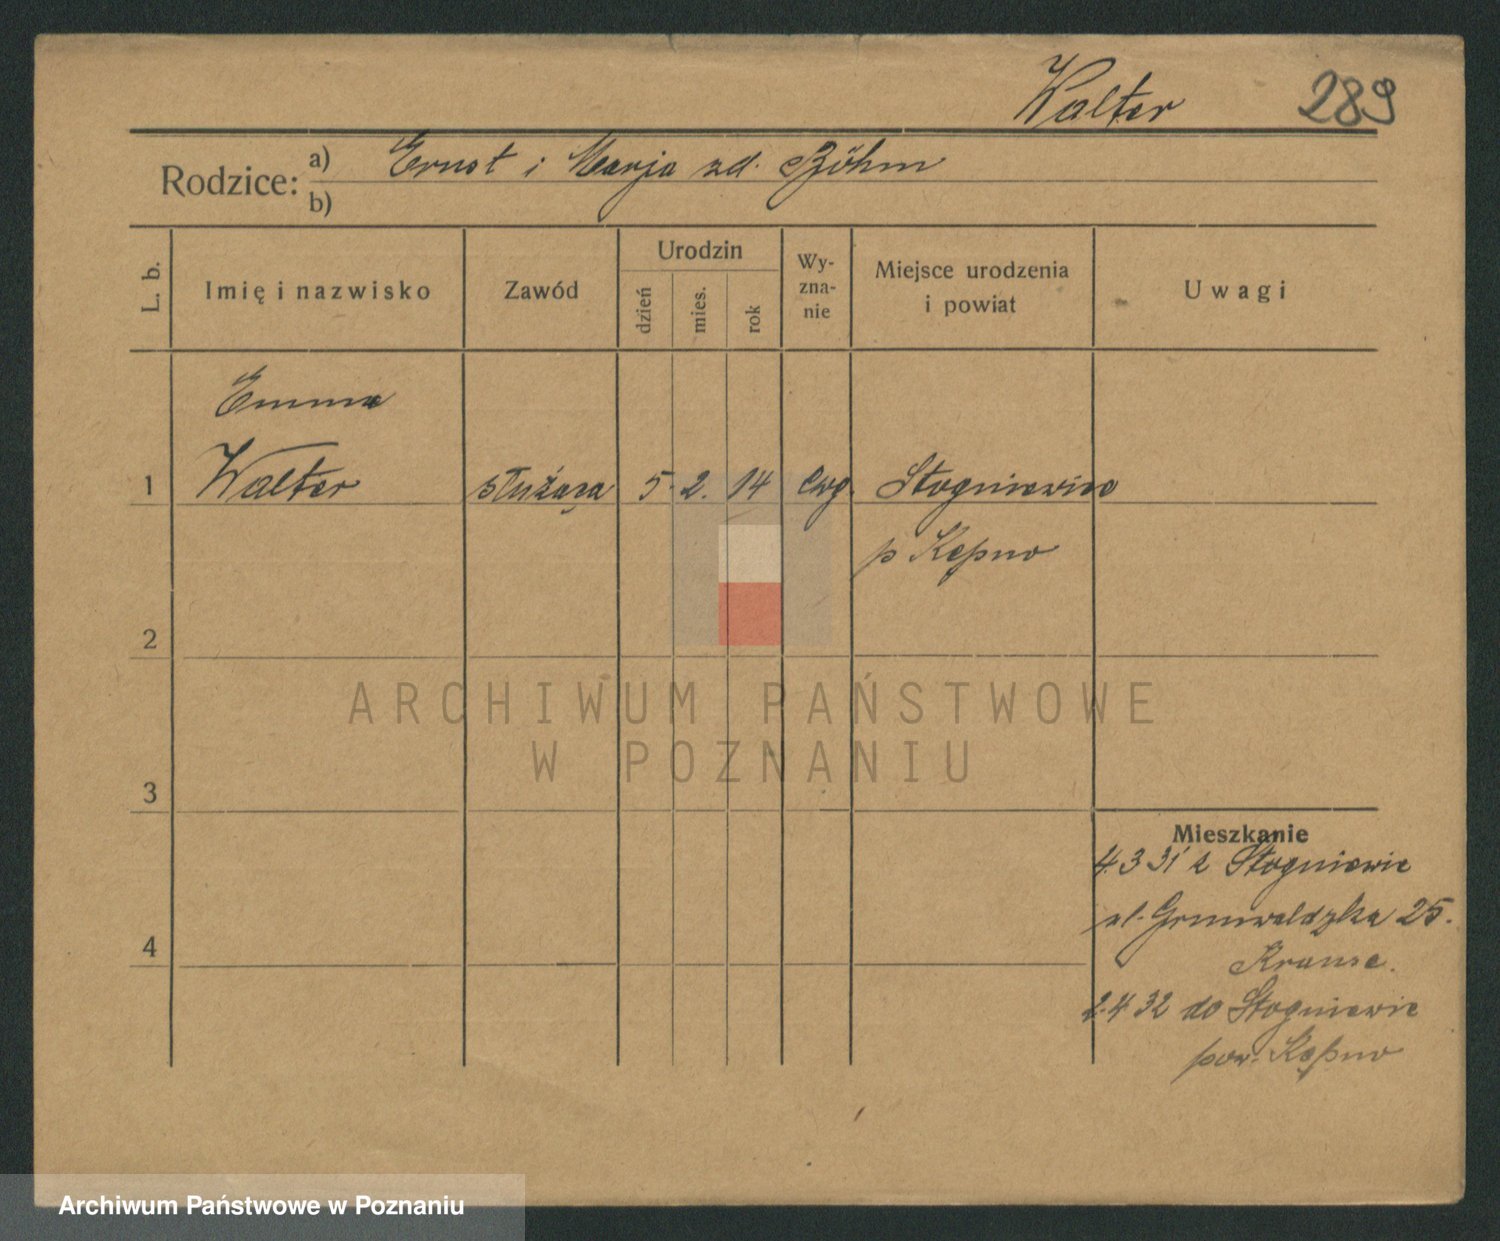 Walter 289
Rodzice: a) Ernst i Marja zd. Böhm
b)
L. b. Imię i nazwisko Zawód Urodzin dzień mies. rok Wy-zna-nie Miejsce urodzenia i powiat Uwagi
Emma
1 Walter służąca 5. 2. 14 ewg. Stogniewice
p Kępno
2
ARCHIWUM PAŃSTWOWE
W POZNANIU
3
Mieszkanie
4.3 31 z Stogniewic
ul. Grunwaldzka 25.
4
Krause.
2.4 32 do Stogniewic
pow. Kępno
Archiwum Państwowe w Poznaniu